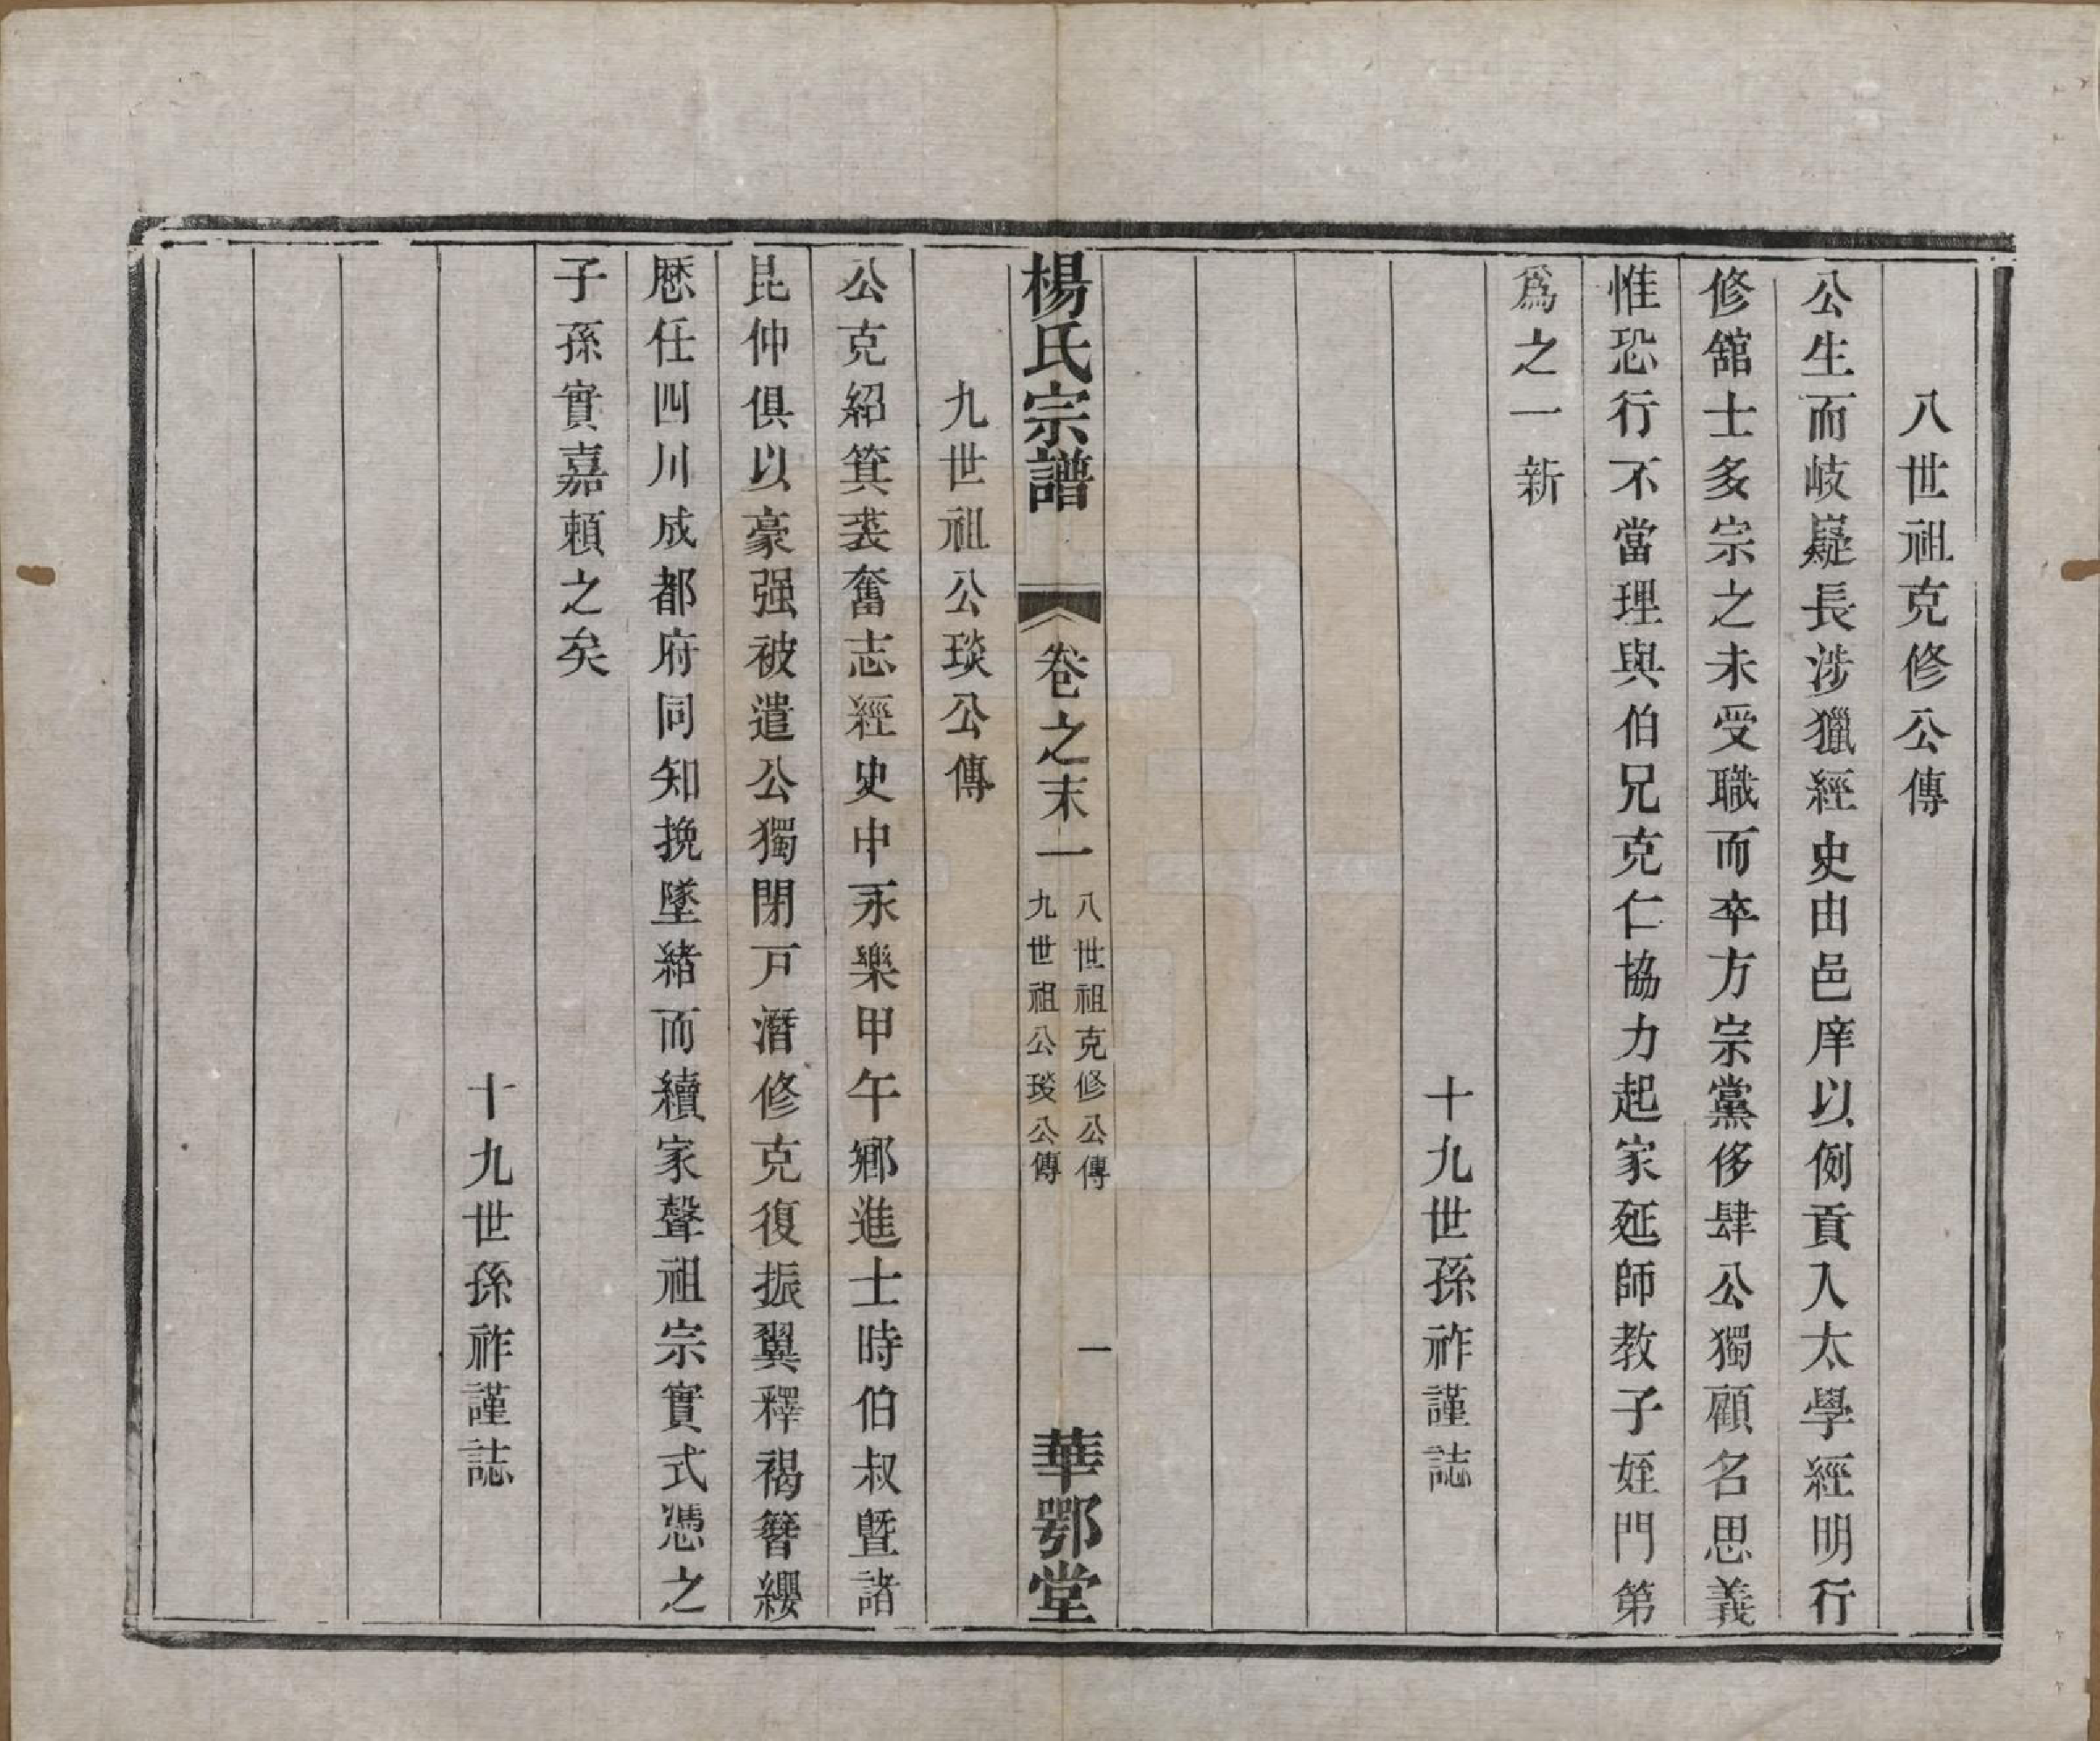 八世祖克修公傳
公生而岐嶷長涉獵經史由邑庠以例貢入太學經明行
修舘士多宗之未受職而卒方宗黨侈肆公獨顧名思義
惟恐行不當理與伯兄克仁協力起家延師教子姪門第
爲之一新
十九世孫祚謹誌
楊氏宗譜
卷之末一
八世祖克修公傳
九世祖公琰公傳
一
華鄂堂
九世祖公琰公傳
公克紹箕裘奮志經史中永樂甲午鄉進士時伯叔曁諸
昆仲俱以豪强被遣公獨閉戸潛修克復振翼釋褐簪纓
歷任四川成都府同知挽墜緒而續家聲祖宗實式憑之
子孫實嘉賴之矣
十九世孫祚謹誌